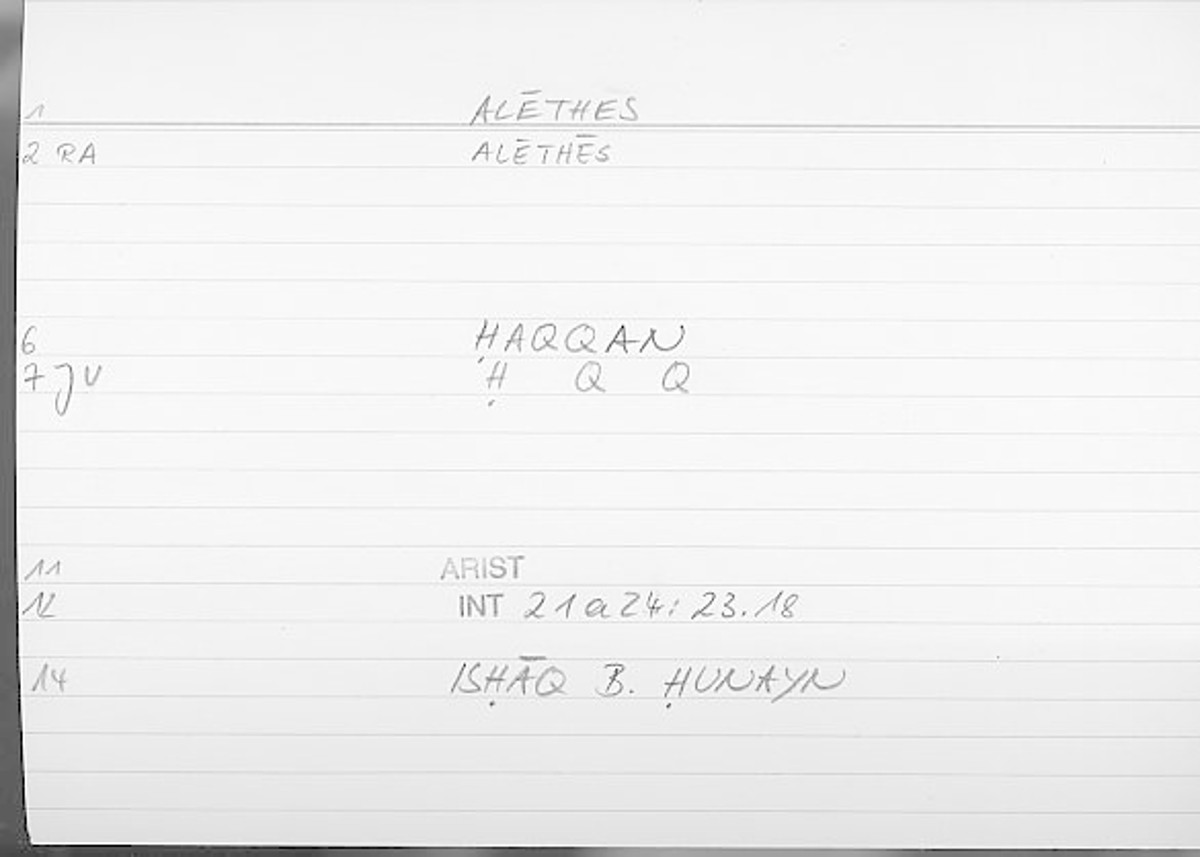 1 ALĒTHES
2 RA ALĒTHĒS
6 ḤAQQAN
7 JV Ḥ Q Q
11 ARIST
12 INT 21a24: 23.18
14 ISḤĀQ B. ḤUNAYN